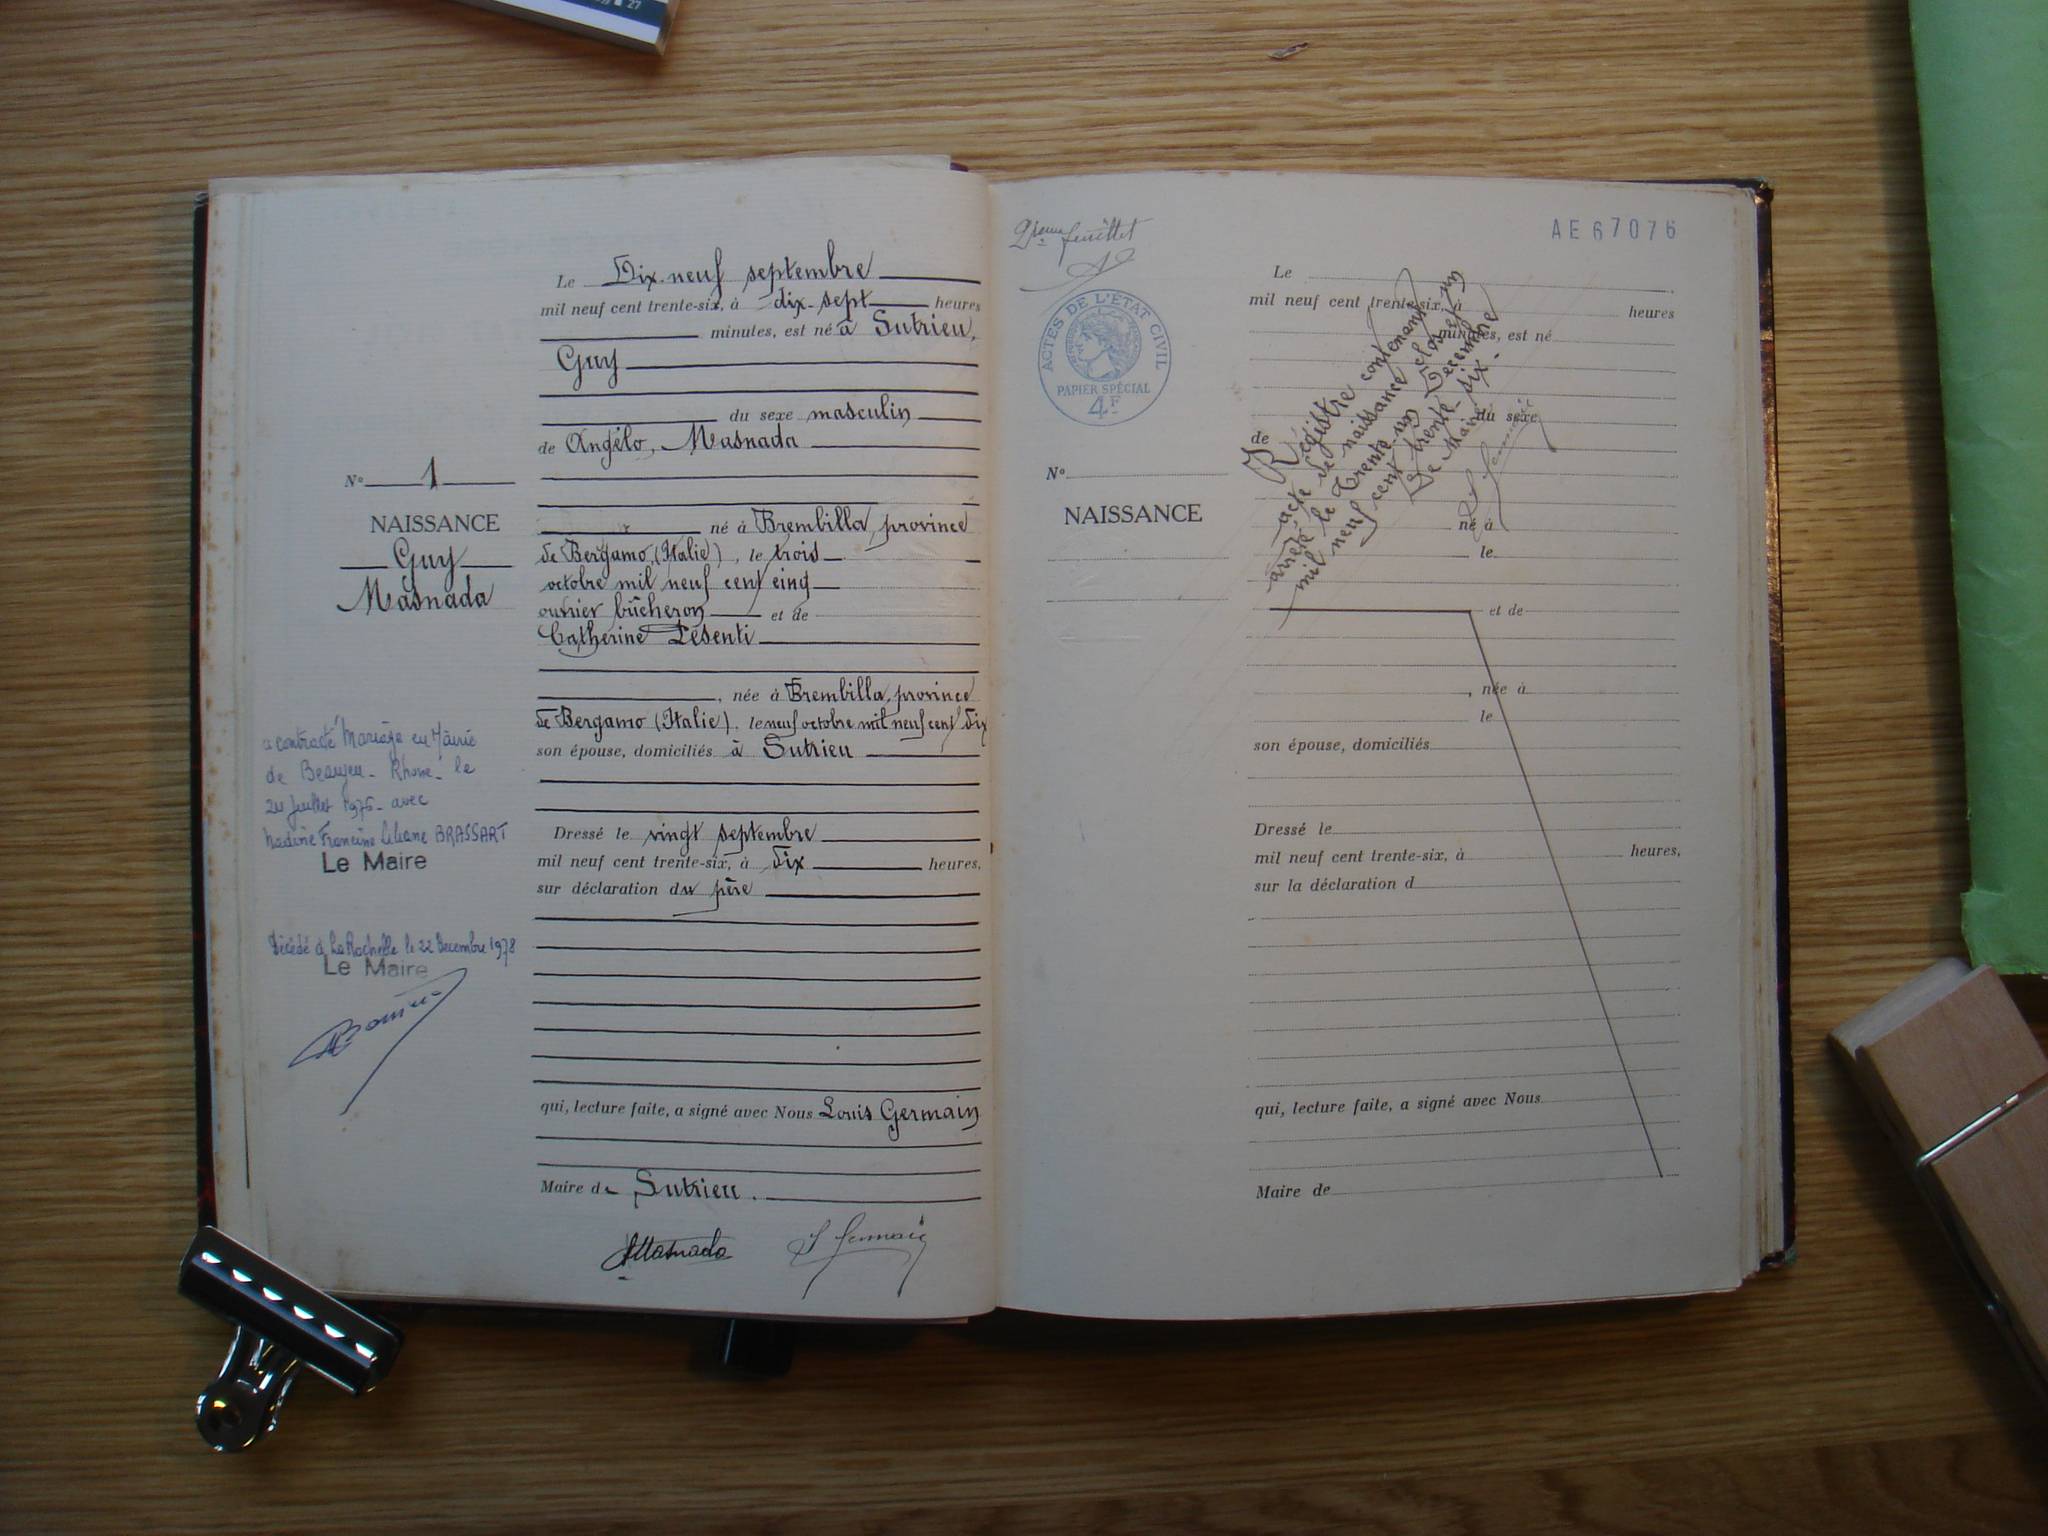 27
Le Dix-neuf septembre
mil neuf cent trente-six, à dix-sept heures
minutes, est né à Sutrieu,
Guy
du sexe masculin
de Angélo, Masnada
né à Brembilla, province
de Bergamo (Italie), le trois
octobre mil neuf cent cinq
ouvrier bûcheron et de
Catherine Pésenti
, née à Brembilla, province
de Bergamo (Italie), le neuf octobre mil neuf cent dix
son épouse, domiciliés à Sutrieu
Dressé le vingt septembre
mil neuf cent trente-six, à dix heures,
sur déclaration du père
qui, lecture faite, a signé avec Nous Louis Germain
Maire de Sutrieu.
AMasnada L Germain
No 1
NAISSANCE
Guy
Masnada
a contracté Mariage en Mairie
de Beaujeu - Rhône - le
24 Juillet 1976 - avec
Nadine Francine Liliane BRASSART
Le Maire
Décédé à La Rochelle le 22 Decembre 1978
Le Maire
2ieme feuillet
AE 67076
ACTES DE L'ÉTAT CIVIL
PAPIER SPÉCIAL
4F
No
NAISSANCE
Le
mil neuf cent trente-six, à heures
minutes, est né
du sexe
de
né à
le
et de
, née à
le
son épouse, domiciliés
Dressé le
mil neuf cent trente-six, à heures,
sur la déclaration d
qui, lecture faite, a signé avec Nous
Maire de
Registre contenant un
acte de naissance clos et
arrêté le Trente un Decembre
mil neuf cent trente-six.
Le Maire
L Germain